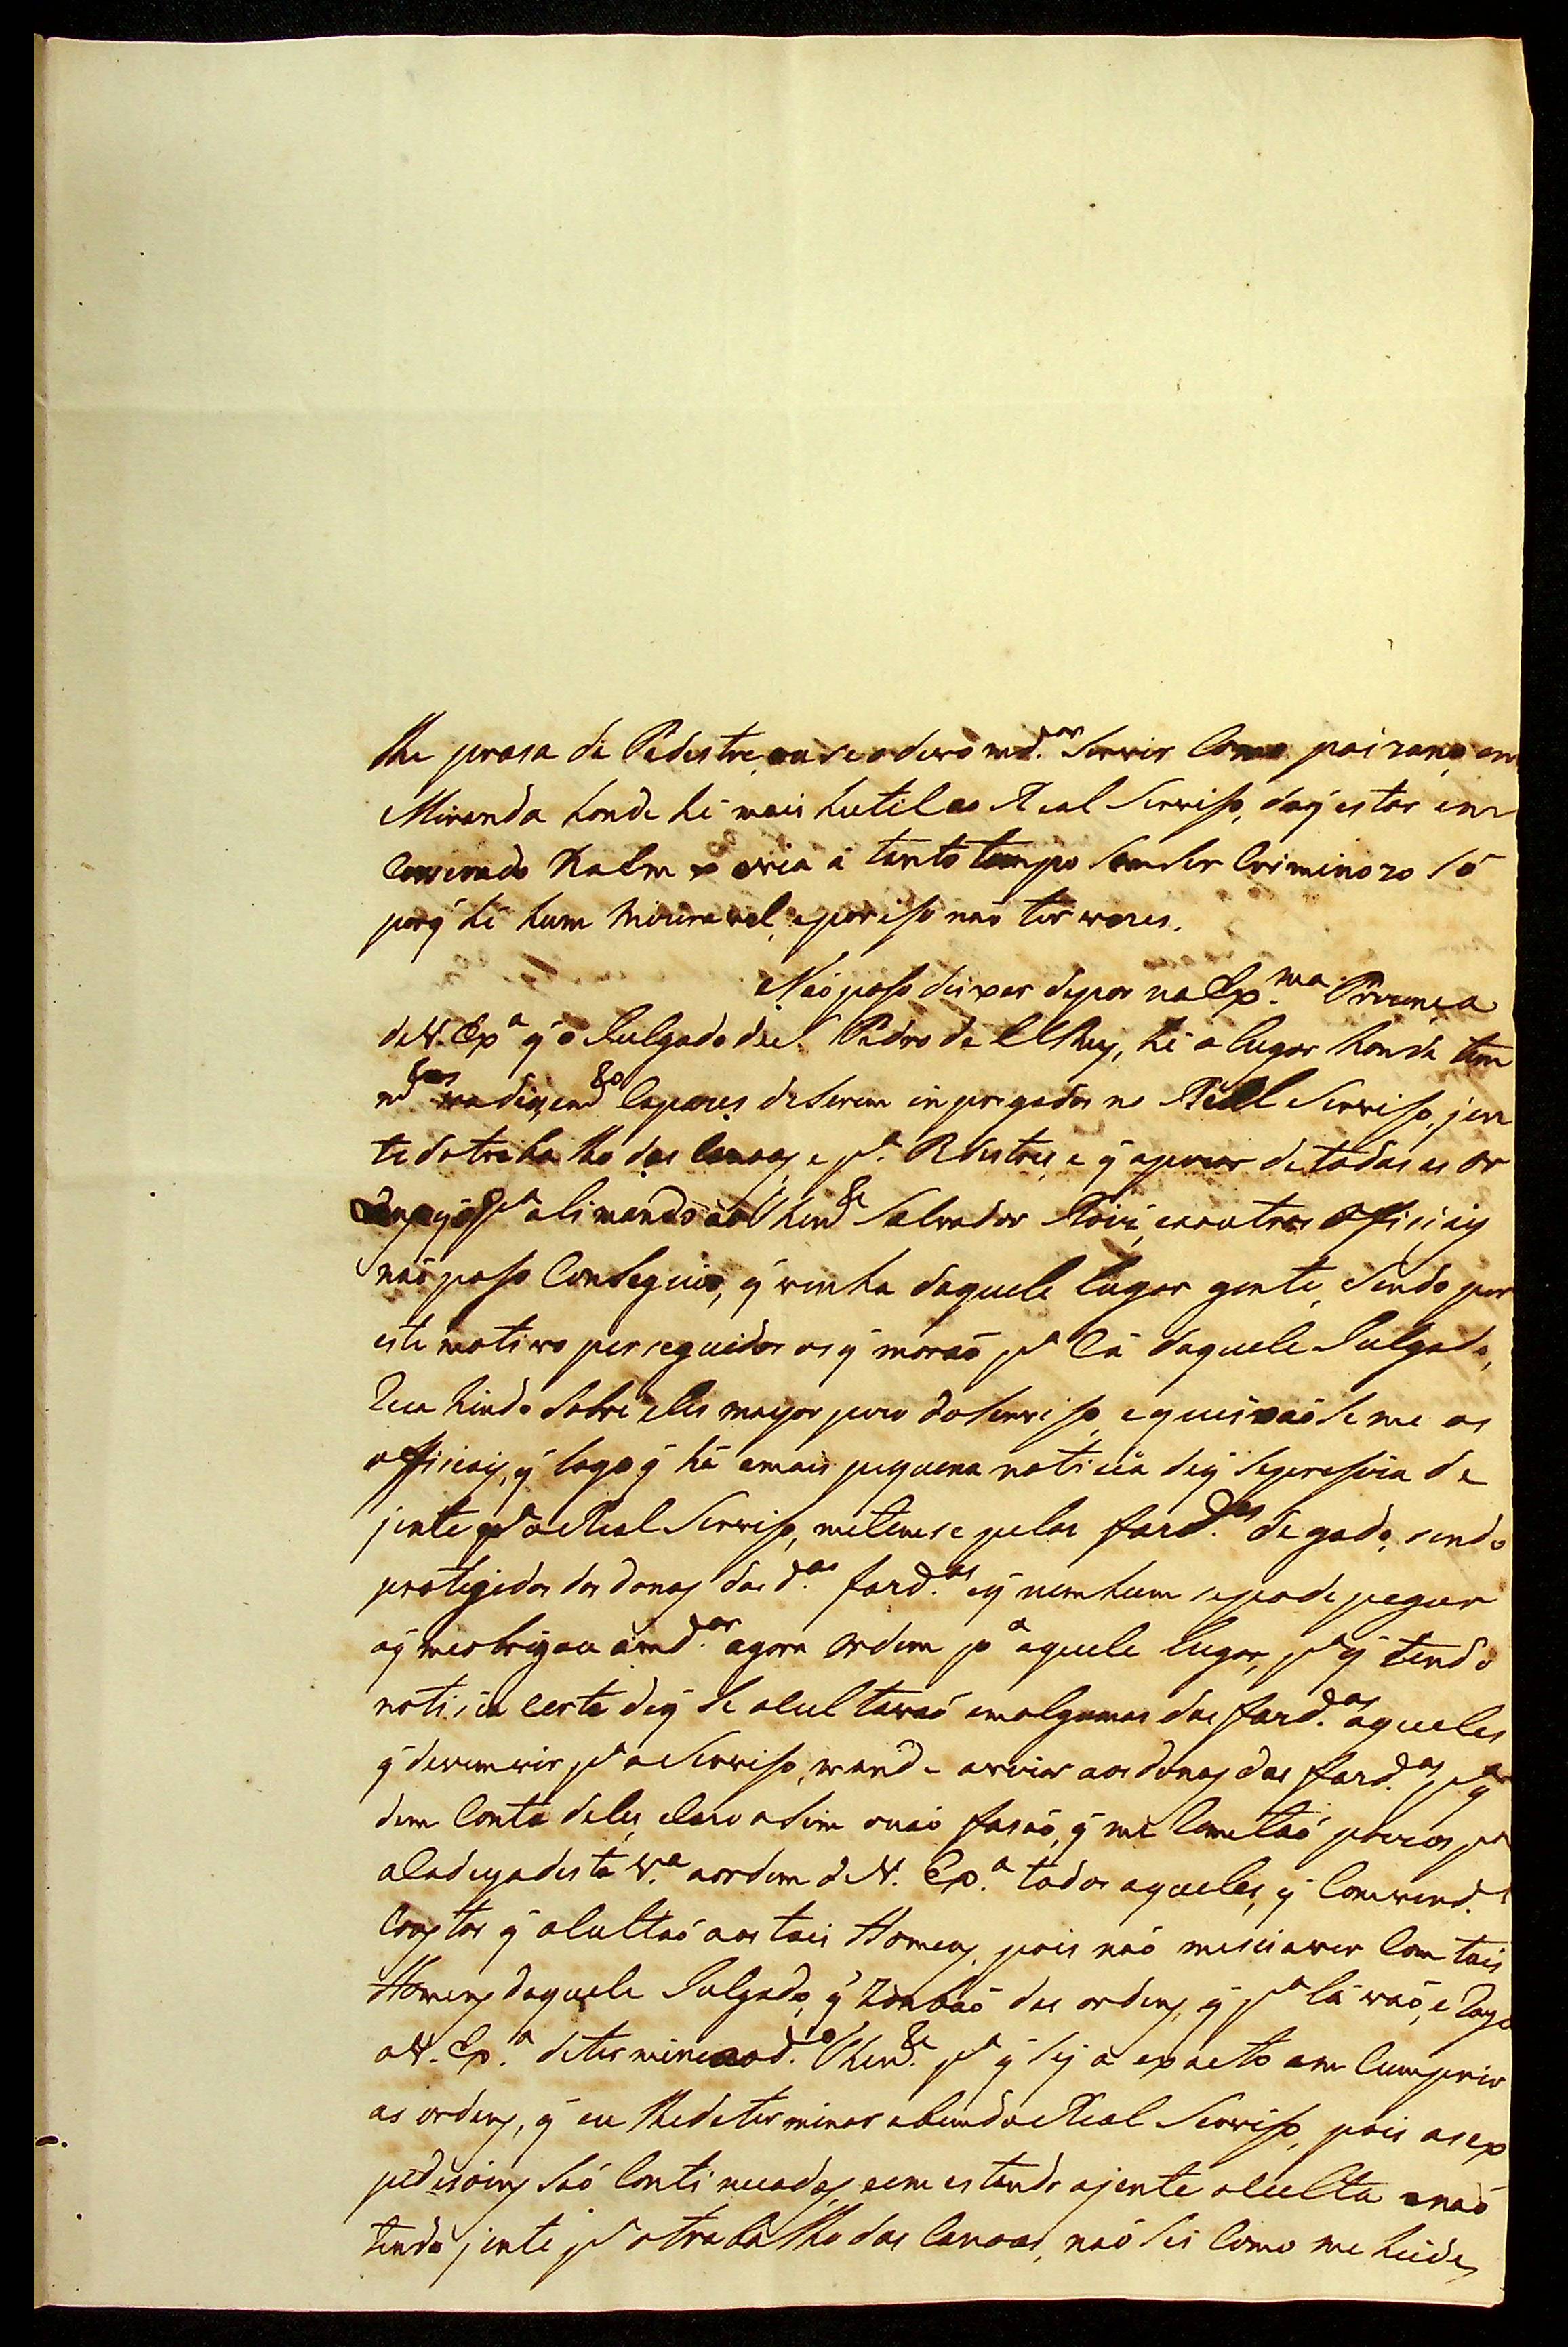 lhe prasa de Pedestre, ou se o devo md.ar Servir Como paizano, em
Miranda honde hé mais hutil ao Real Servisso, do q̃ estar en
Conserado na a tanto tempo sem ser Criminozo só
porq̃ hé hum miseravel, e por isso naó ter vozes.
Naó posso deixar de por na Exp.ma Prezença
de V. Exp.a q̃ o Julgado de S. Pedro de ElRey, hé o lugar honde tem
md.tos vadios, md.to Capazes de serem in pregados no Real Servisso, jen
te do trabalho das Canoas, e p.a Pedestres, e q̃ apezar de todas as or
dens q̃ p.a ali mando ao Then.de Salvador e a outros Officiais
naó posso Conseguir, q̃ venha daquele lugar gente, Sendo por
este motivo perseguidos os q̃ moraó p.a Cá daquele Julgado,
recahindo sobre eles mayor pezo do Servisso, e queixaó se me os
officiais, q̃ logo q̃ há a mais pequena noticia de q̃ se presiza de
jente p.a o Real Servisso, metem se pelas fazd.as de gado, sendo
protegidos dos donos das d.as fazd.as e q̃ nemhum se pode pegar
o q̃ me obrigou a md.ar agora Ordem p.a aquele lugar, p.a q̃ tendo
notisia certa de q̃ se ocultavaó em algumas das fazd.as aqueles
q̃ devem vir p.a o Servisso, mande avizar aos donos das fazd.as, p.a q̃
dem Conta deles, e cazo asim o naó fasaó, q̃ me remetaó prezos p.a
a Cadeya desta V.a a ordem de V. Exp.a todos aqueles, q̃
Constar q̃ ocultaó aos tais Homens, pois naó me sei aver Com tais
Homens daquele Julgado, q̃ Zonbaó das ordens, q̃ p.a lá vaó, e Rogo
a V. Exp.a determine ao d.o Then.de p.a q̃ seja exacto em Cumprir
as ordens, q̃ eu lhe determinar a bem do Real Servisso, pois as ex
pedisoins saó Continuadas, e em estando a jente oculta e naó
tendo jente p.a o trabalho das Canoas, naó sei Como me heide,